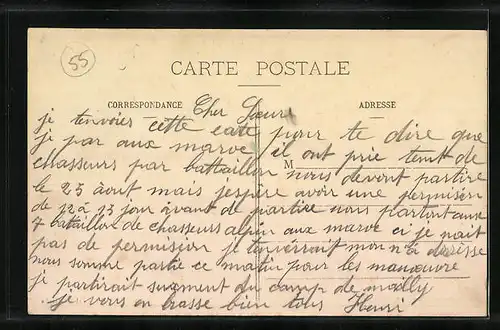 55
CARTE POSTALE
CORRESPONDANCE
ADRESSE
Cher Soeur
je tenvoies cette carte pour te dire que
je par aux maroc il ont prie temt de
M
chasseurs par battaillon nous devont partire
le 25 aout mais jespère avoir une permision
de 12 à 15 jour avant de partire nous partont aux
7 bataillon de chasseurs alpin aux maroc ci je nait
pas de permision je tenverrait mon adresse
nous somme partie ce matin pour les manœuvre
je partirait surment du camp de mailly
je vous en brasse bien tous Henri